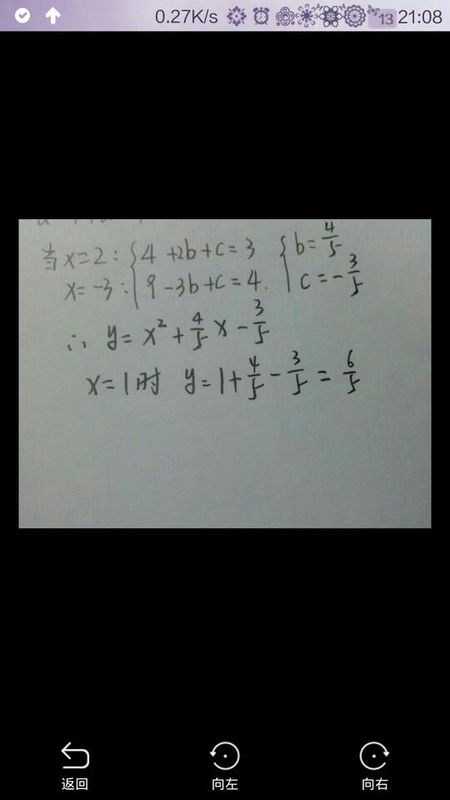 0.27K/s 13 21:08
当x=2:{4+2b+c=3 {b=4/5
x=-3:{9-3b+c=4. {c=-3/5
∴ y=x²+4/5x-3/5
x=1时 y=1+4/5-3/5=6/5
返回 向左 向右